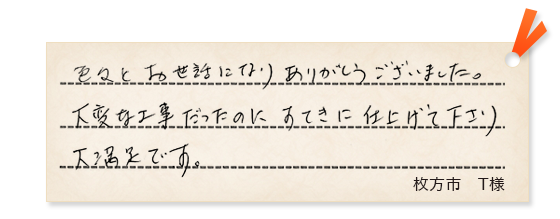 色々とお世話になりありがとうございました。
大変な工事だったのにすてきに仕上げて下さり
大満足です。
枚方市　T様